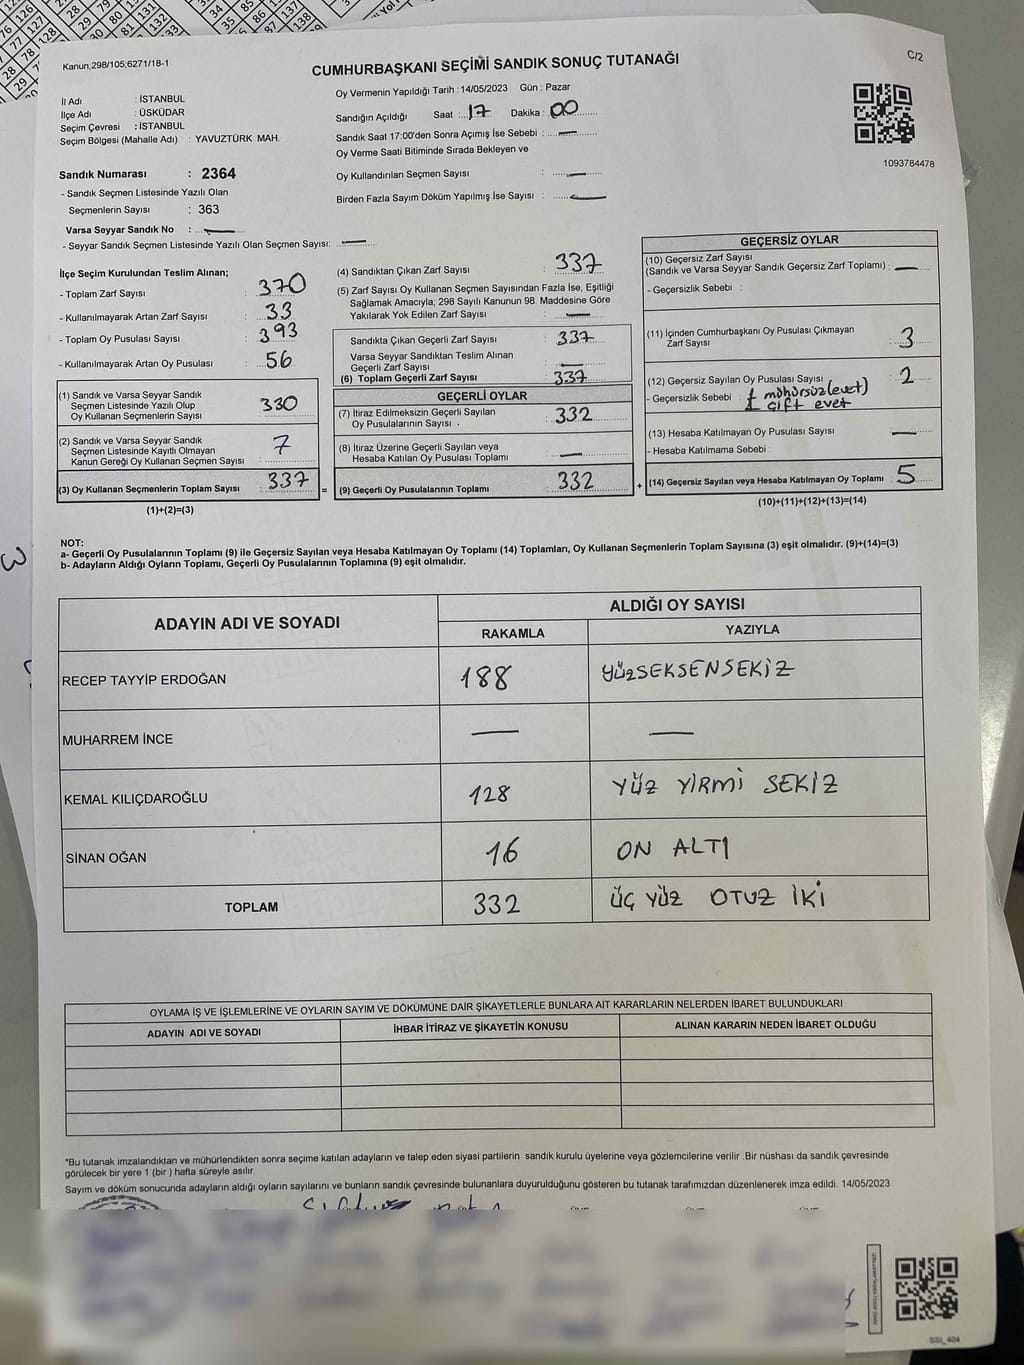 Kanun;298/105;6271/18-1
CUMHURBAŞKANI SEÇİMİ SANDIK SONUÇ TUTANAĞI
C/2
İl Adı : İSTANBUL
İlçe Adı : ÜSKÜDAR
Seçim Çevresi : İSTANBUL
Seçim Bölgesi (Mahalle Adı) : YAVUZTÜRK MAH.
Oy Vermenin Yapıldığı Tarih : 14/05/2023 Gün : Pazar
Sandığın Açıldığı Saat : 17 Dakika : 00
Sandık Saat 17:00'den Sonra Açımış İse Sebebi : —
Oy Verme Saati Bitiminde Sırada Bekleyen ve
Oy Kullandırılan Seçmen Sayısı : —
Birden Fazla Sayım Döküm Yapılmış İse Sayısı : —
1093784478
Sandık Numarası : 2364
- Sandık Seçmen Listesinde Yazılı Olan
Seçmenlerin Sayısı : 363
Varsa Seyyar Sandık No : —
- Seyyar Sandık Seçmen Listesinde Yazılı Olan Seçmen Sayısı: —
İlçe Seçim Kurulundan Teslim Alınan;
- Toplam Zarf Sayısı : 370
- Kullanılmayarak Artan Zarf Sayısı : 33
- Toplam Oy Pusulası Sayısı : 393
- Kullanılmayarak Artan Oy Pusulası : 56
(1) Sandık ve Varsa Seyyar Sandık
Seçmen Listesinde Yazılı Olup
Oy Kullanan Seçmenlerin Sayısı : 330
(2) Sandık ve Varsa Seyyar Sandık
Seçmen Listesinde Kayıtlı Olmayan
Kanun Gereği Oy Kullanan Seçmen Sayısı : 7
(3) Oy Kullanan Seçmenlerin Toplam Sayısı : 337 =
(1)+(2)=(3)
(4) Sandıktan Çıkan Zarf Sayısı : 337
(5) Zarf Sayısı Oy Kullanan Seçmen Sayısından Fazla İse, Eşitliği
Sağlamak Amacıyla; 298 Sayılı Kanunun 98. Maddesine Göre
Yakılarak Yok Edilen Zarf Sayısı : —
Sandıkta Çıkan Geçerli Zarf Sayısı : 337
Varsa Seyyar Sandıktan Teslim Alınan
Geçerli Zarf Sayısı : —
(6) Toplam Geçerli Zarf Sayısı : 337
GEÇERLİ OYLAR
(7) İtiraz Edilmeksizin Geçerli Sayılan
Oy Pusulalarının Sayısı : 332
(8) İtiraz Üzerine Geçerli Sayılan veya
Hesaba Katılan Oy Pusulası Toplamı : —
(9) Geçerli Oy Pusulalarının Toplamı : 332 +
GEÇERSİZ OYLAR
(10) Geçersiz Zarf Sayısı
(Sandık ve Varsa Seyyar Sandık Geçersiz Zarf Toplamı) : —
- Geçersizlik Sebebi :
(11) İçinden Cumhurbaşkanı Oy Pusulası Çıkmayan
Zarf Sayısı : 3
(12) Geçersiz Sayılan Oy Pusulası Sayısı : 2
- Geçersizlik Sebebi : 1 mühürsüz (evet)
1 çift evet
(13) Hesaba Katılmayan Oy Pusulası Sayısı : —
- Hesaba Katılmama Sebebi :
(14) Geçersiz Sayılan veya Hesaba Katılmayan Oy Toplamı : 5
(10)+(11)+(12)+(13)=(14)
NOT:
a- Geçerli Oy Pusulalarının Toplamı (9) ile Geçersiz Sayılan veya Hesaba Katılmayan Oy Toplamı (14) Toplamları, Oy Kullanan Seçmenlerin Toplam Sayısına (3) eşit olmalıdır. (9)+(14)=(3)
b- Adayların Aldığı Oyların Toplamı, Geçerli Oy Pusulalarının Toplamına (9) eşit olmalıdır.
ADAYIN ADI VE SOYADI
ALDIĞI OY SAYISI
RAKAMLA YAZIYLA
RECEP TAYYİP ERDOĞAN 188 YÜZSEKSENSEKİZ
MUHARREM İNCE — —
KEMAL KILIÇDAROĞLU 128 YÜZ YİRMİ SEKİZ
SİNAN OĞAN 16 ON ALTI
TOPLAM 332 ÜÇ YÜZ OTUZ İKİ
OYLAMA İŞ VE İŞLEMLERİNE VE OYLARIN SAYIM VE DÖKÜMÜNE DAİR ŞİKAYETLERLE BUNLARA AİT KARARLARIN NELERDEN İBARET BULUNDUKLARI
ADAYIN ADI VE SOYADI İHBAR İTİRAZ VE ŞİKAYETİN KONUSU ALINAN KARARIN NEDEN İBARET OLDUĞU
*Bu tutanak imzalandıktan ve mühürlendikten sonra seçime katılan adayların ve talep eden siyasi partilerin sandık kurulu üyelerine veya gözlemcilerine verilir .Bir nüshası da sandık çevresinde
görülecek bir yere 1 (bir ) hafta süreyle asılır.
Sayım ve döküm sonucunda adayların aldığı oyların sayılarını ve bunların sandık çevresinde bulunanlara duyurulduğunu gösteren bu tutanak tarafımızdan düzenlenerek imza edildi. 14/05/2023